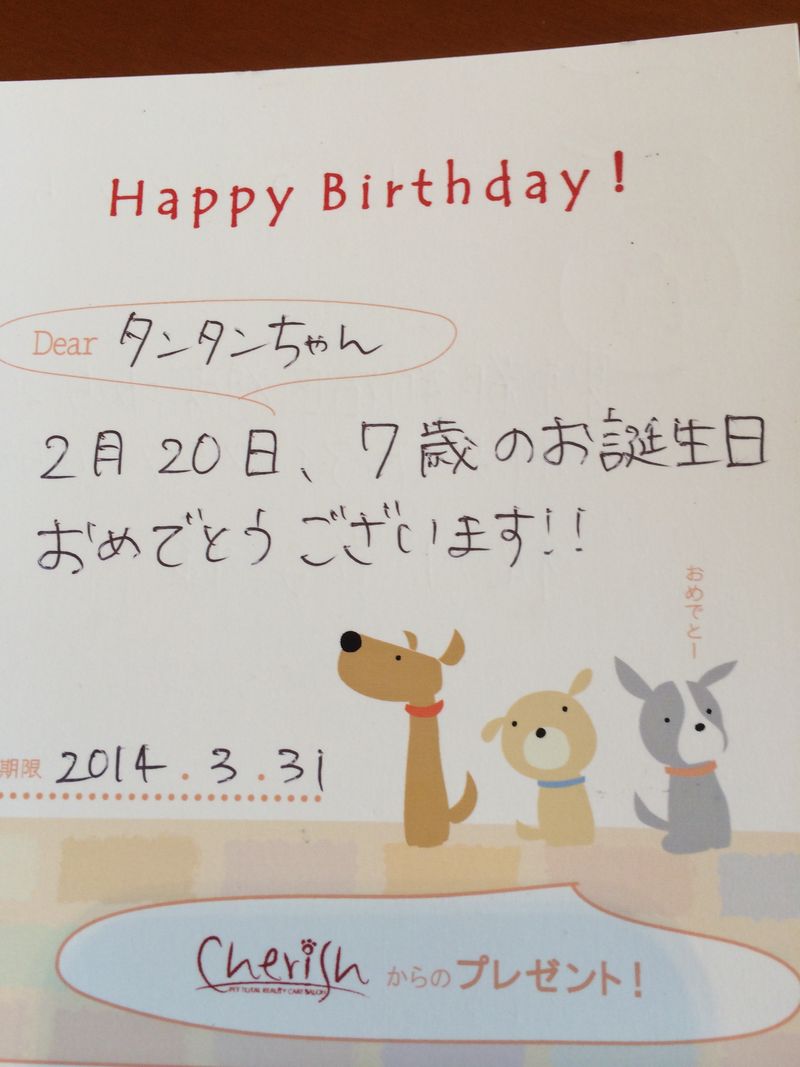 Happy Birthday!
Dear タンタンちゃん
2月20日、7歳のお誕生日
おめでとうございます!!
おめでとー
期限 2014.3.31
Cherish からのプレゼント!
PET TOTAL BEAUTY CARE SALON